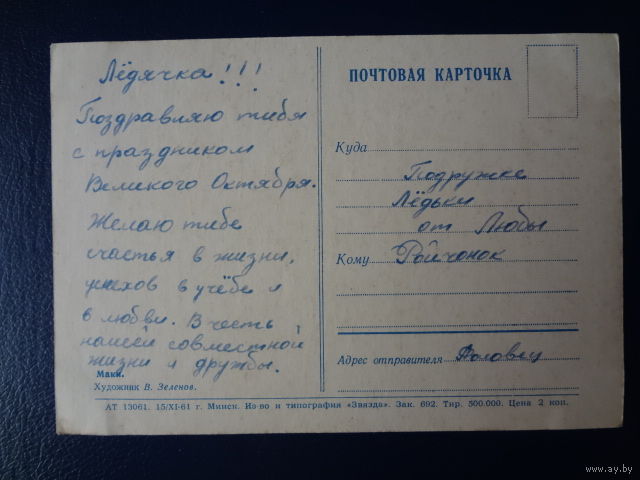 Лёдячка!!!
Поздравляю тебя
с праздником
Великого Октября.
Желаю тебе
счастья в жизни,
успехов в учёбе и
в любви. В честь
нашей совместной
жизни и дружбы.
Маки.
Художник В. Зеленов.
ПОЧТОВАЯ КАРТОЧКА
Куда
Подружке
Лёдьки
от Любы
Кому
Адрес отправителя
АТ 13061. 15/XI-61 г. Минск. Из-во и типография «Звязда». Зак. 692. Тир. 500.000. Цена 2 коп.
www.ay.by